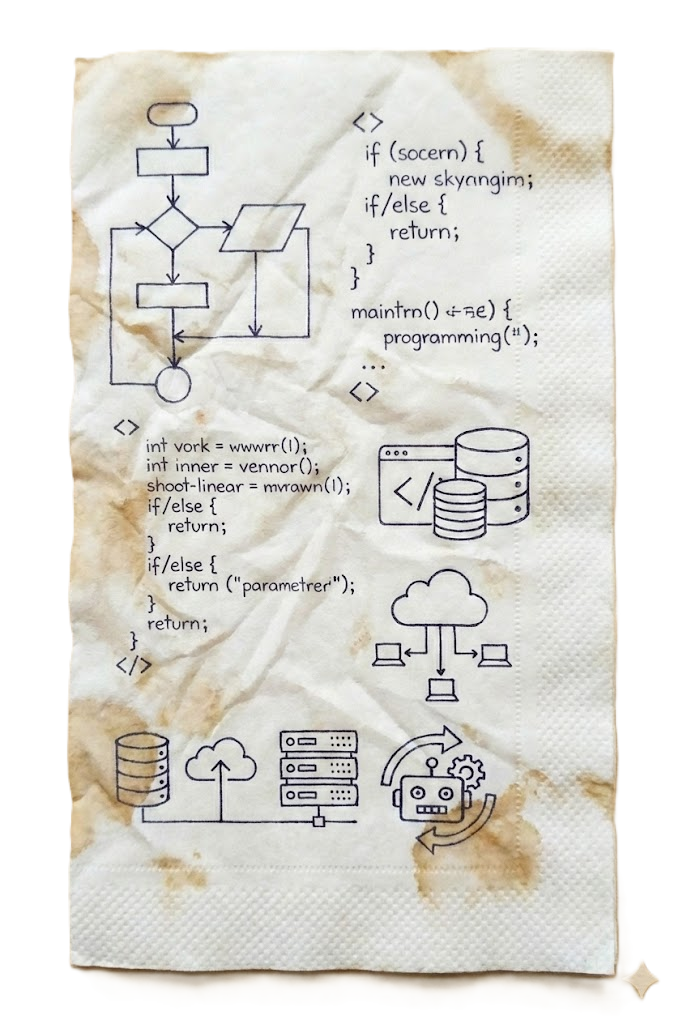 <>
if (socern) {
new skyangim;
if/else {
return;
}
}
maintrn() {
programming(");
...
<>
<>
int vork = wwwrr(1);
int inner = vennor();
shoot-linear = mvrawn(1);
if/else {
return;
}
if/else {
return ("parametrer");
}
return;
}
</>
</